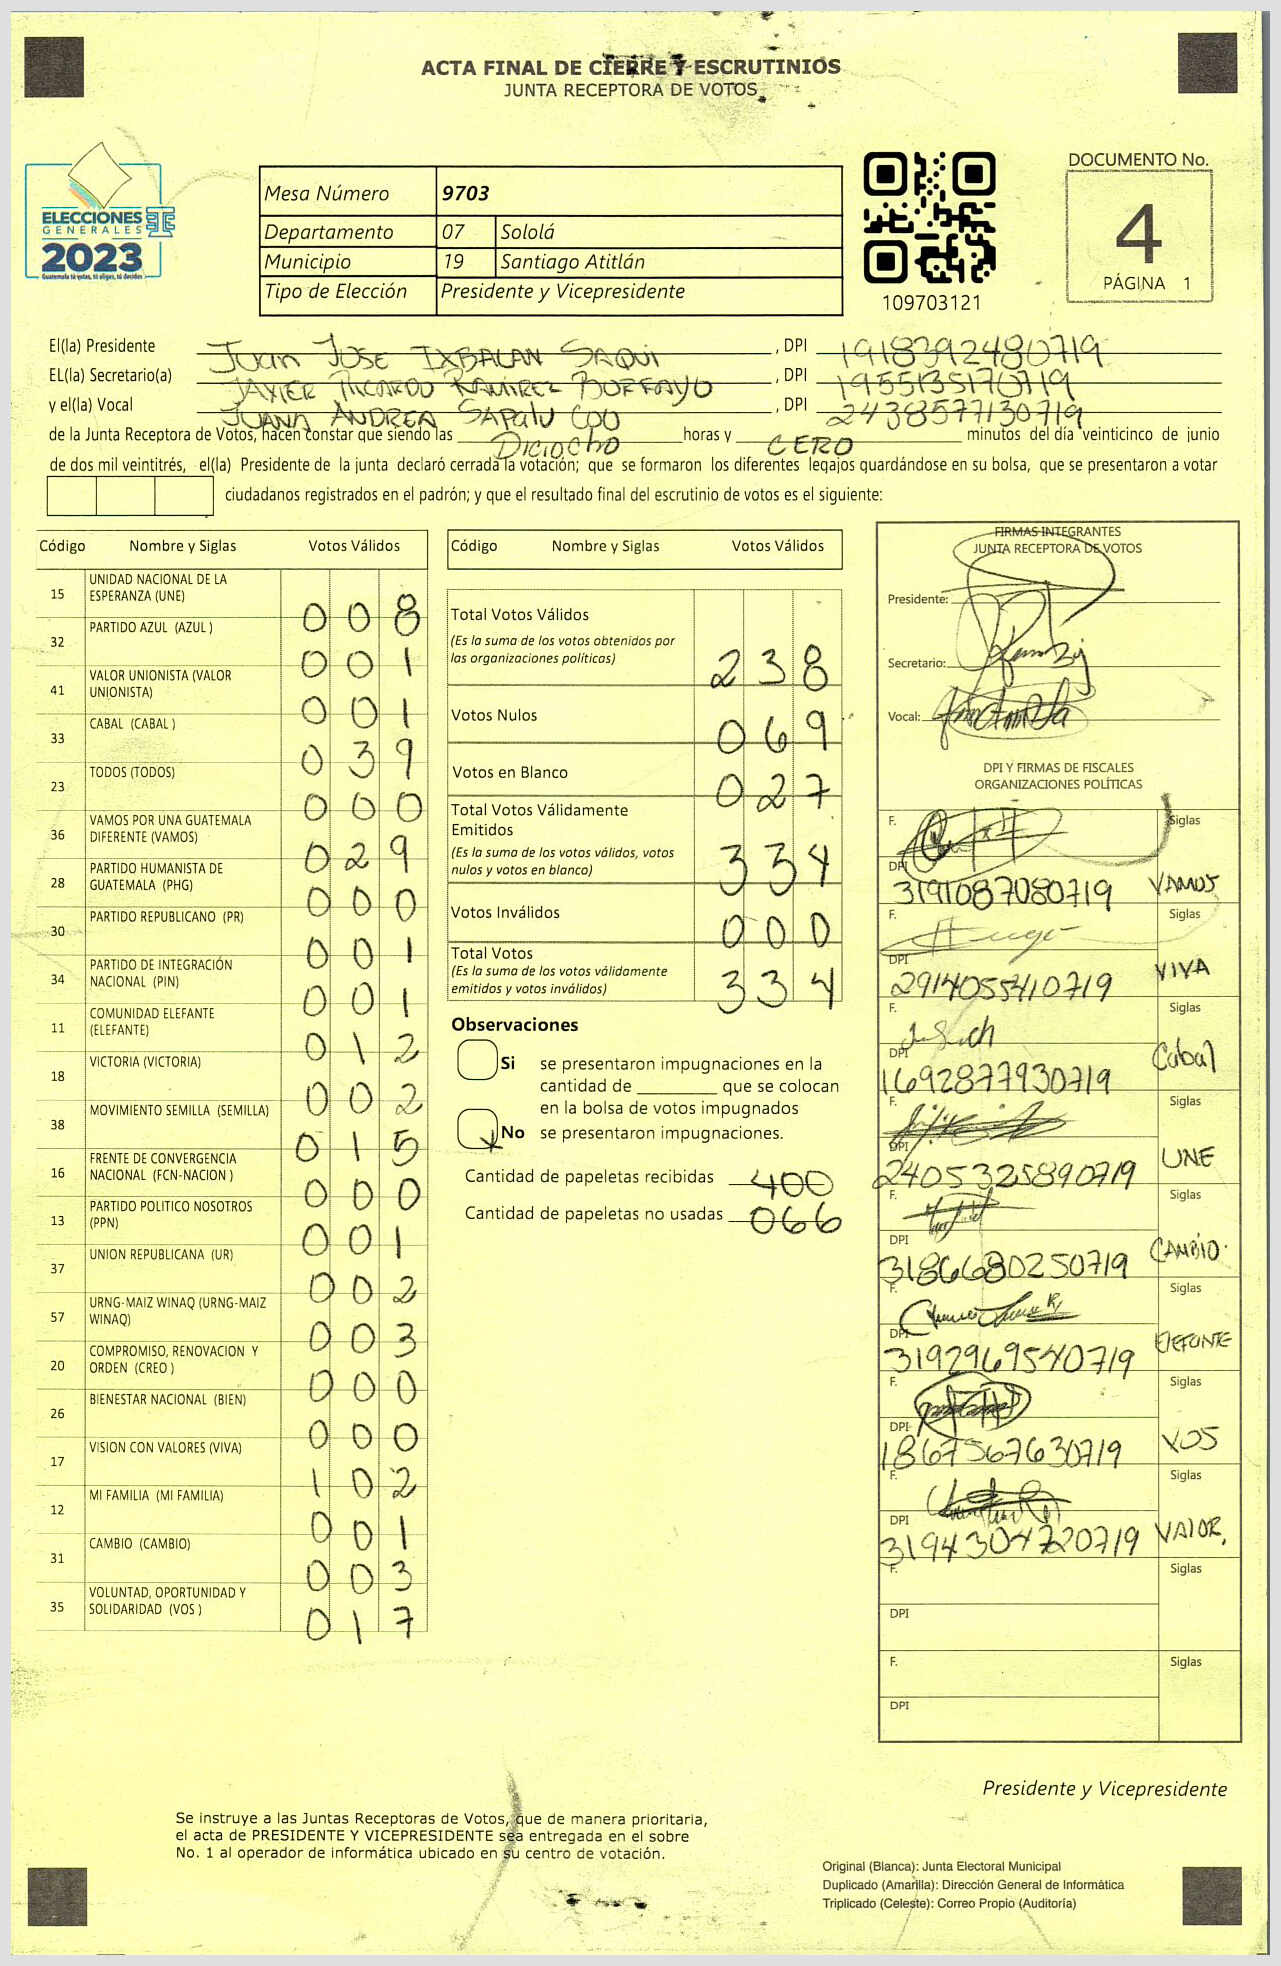 ACTA FINAL DE CIERRE Y ESCRUTINIOS
JUNTA RECEPTORA DE VOTOS
ELECCIONES
GENERALES
2023
Guatemala tú votas, tú eliges, tú decides
Mesa Número 9703
Departamento 07 Sololá
Municipio 19 Santiago Atitlán
Tipo de Elección Presidente y Vicepresidente
109703121
DOCUMENTO No.
4
PÁGINA 1
El(la) Presidente Juan JOSE IXBALAN SAQUI , DPI 1918392480719
EL(la) Secretario(a) JAVIER RICARDO RAMIREZ , DPI 1955135170719
y el(la) Vocal JUANA ANDREA SAPalU COO , DPI 2438577130719
de la Junta Receptora de Votos, hacen constar que siendo las Diciocho horas y CERO minutos del día veinticinco de junio
de dos mil veintitrés, el(la) Presidente de la junta declaró cerrada la votación; que se formaron los diferentes legajos guardándose en su bolsa, que se presentaron a votar
ciudadanos registrados en el padrón; y que el resultado final del escrutinio de votos es el siguiente:
Código Nombre y Siglas Votos Válidos
15 UNIDAD NACIONAL DE LA ESPERANZA (UNE) 008
32 PARTIDO AZUL (AZUL ) 001
41 VALOR UNIONISTA (VALOR UNIONISTA) 001
33 CABAL (CABAL ) 039
23 TODOS (TODOS) 000
36 VAMOS POR UNA GUATEMALA DIFERENTE (VAMOS) 029
28 PARTIDO HUMANISTA DE GUATEMALA (PHG) 000
30 PARTIDO REPUBLICANO (PR) 001
34 PARTIDO DE INTEGRACIÓN NACIONAL (PIN) 001
11 COMUNIDAD ELEFANTE (ELEFANTE) 012
18 VICTORIA (VICTORIA) 002
38 MOVIMIENTO SEMILLA (SEMILLA) 015
16 FRENTE DE CONVERGENCIA NACIONAL (FCN-NACION ) 000
13 PARTIDO POLITICO NOSOTROS (PPN) 001
37 UNION REPUBLICANA (UR) 002
57 URNG-MAIZ WINAQ (URNG-MAIZ WINAQ) 003
20 COMPROMISO, RENOVACION Y ORDEN (CREO ) 000
26 BIENESTAR NACIONAL (BIEN) 000
17 VISION CON VALORES (VIVA) 102
12 MI FAMILIA (MI FAMILIA) 001
31 CAMBIO (CAMBIO) 003
35 VOLUNTAD, OPORTUNIDAD Y SOLIDARIDAD (VOS ) 017
Código Nombre y Siglas Votos Válidos
Total Votos Válidos
(Es la suma de los votos obtenidos por
las organizaciones políticas) 238
Votos Nulos 069
Votos en Blanco 027
Total Votos Válidamente
Emitidos
(Es la suma de los votos válidos, votos
nulos y votos en blanco) 334
Votos Inválidos 000
Total Votos
(Es la suma de los votos válidamente
emitidos y votos inválidos) 334
Observaciones
Si se presentaron impugnaciones en la
cantidad de ________ que se colocan
en la bolsa de votos impugnados
x No se presentaron impugnaciones.
Cantidad de papeletas recibidas 400
Cantidad de papeletas no usadas 066
FIRMAS INTEGRANTES
JUNTA RECEPTORA DE VOTOS
Presidente:
Secretario:
Vocal:
DPI Y FIRMAS DE FISCALES
ORGANIZACIONES POLÍTICAS
F. Siglas
DPI 3191087080719 VAMOS
F. Siglas
DPI 2914055410719 VIVA
F. Siglas
DPI 1692877930719 Cabal
F. Siglas
DPI 2405325890719 UNE
F. Siglas
DPI 3186680250719 CAMBIO.
F. Siglas
DPI 3192969540719 ElEFANTE
F. Siglas
DPI 1867567630719 VOS
F. Siglas
DPI 3194304720719 VALOR,
F. Siglas
DPI
F. Siglas
DPI
Presidente y Vicepresidente
Se instruye a las Juntas Receptoras de Votos, que de manera prioritaria,
el acta de PRESIDENTE Y VICEPRESIDENTE sea entregada en el sobre
No. 1 al operador de informática ubicado en su centro de votación.
Original (Blanca): Junta Electoral Municipal
Duplicado (Amarilla): Dirección General de Informática
Triplicado (Celeste): Correo Propio (Auditoría)